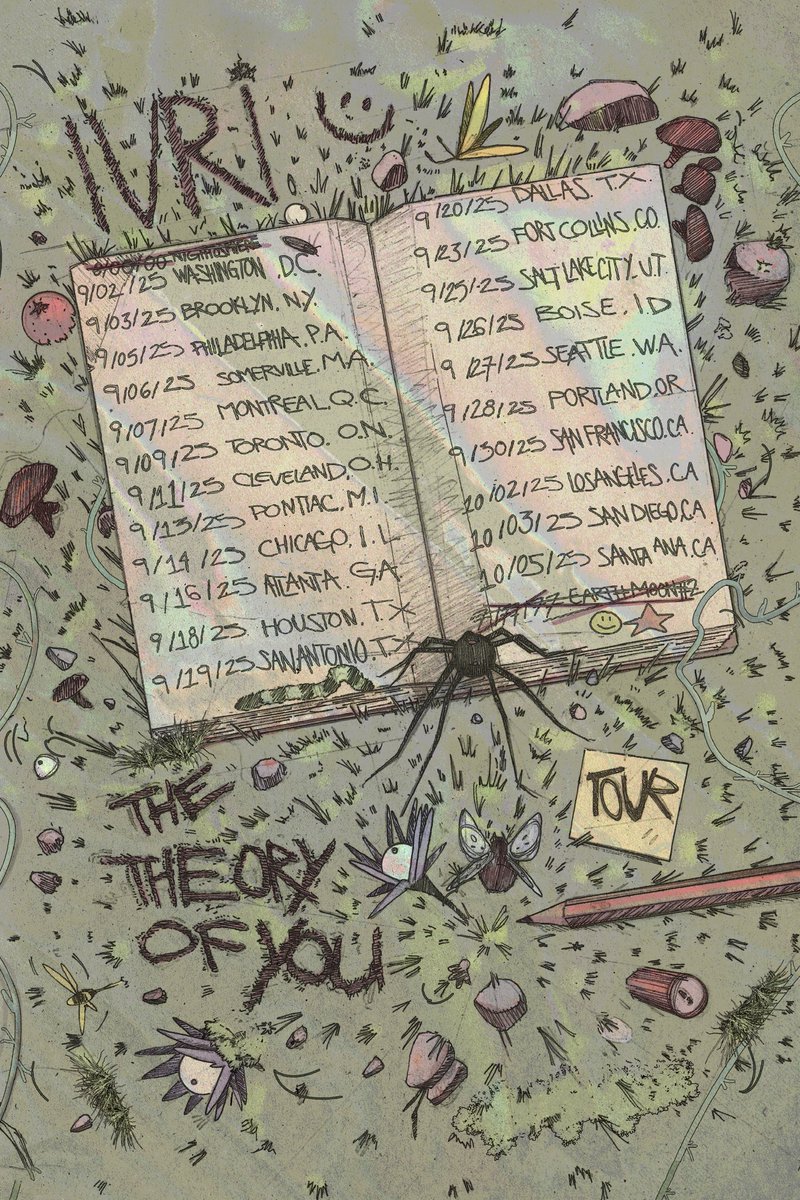 IVRI
0/00/00 NIGHTOSPHERE
9/02/25 WASHINGTON, D.C.
9/03/25 BROOKLYN, N.Y.
9/05/25 PHILADELPHIA, P.A.
9/06/25 SOMERVILLE, M.A.
9/07/25 MONTREAL, Q.C.
9/09/25 TORONTO, O.N.
9/11/25 CLEVELAND, O.H.
9/13/25 PONTIAC, M.I.
9/14/25 CHICAGO, I.L
9/16/25 ATLANTA, G.A
9/18/25 HOUSTON, T.X
9/19/25 SAN ANTONIO, T.X
9/20/25 DALLAS, T.X
9/23/25 FORT COLLINS, CO.
9/25/25 SALT LAKE CITY, U.T
9/26/25 BOISE, I.D
9/27/25 SEATTLE, W.A.
9/28/25 PORTLAND, OR
9/30/25 SAN FRANCISCO, CA.
10/02/25 LOS ANGELES, CA
10/03/25 SAN DIEGO, CA
10/05/25 SANTA ANA, CA
EARTH MOON #2
THE
THEORY
OF YOU
TOUR